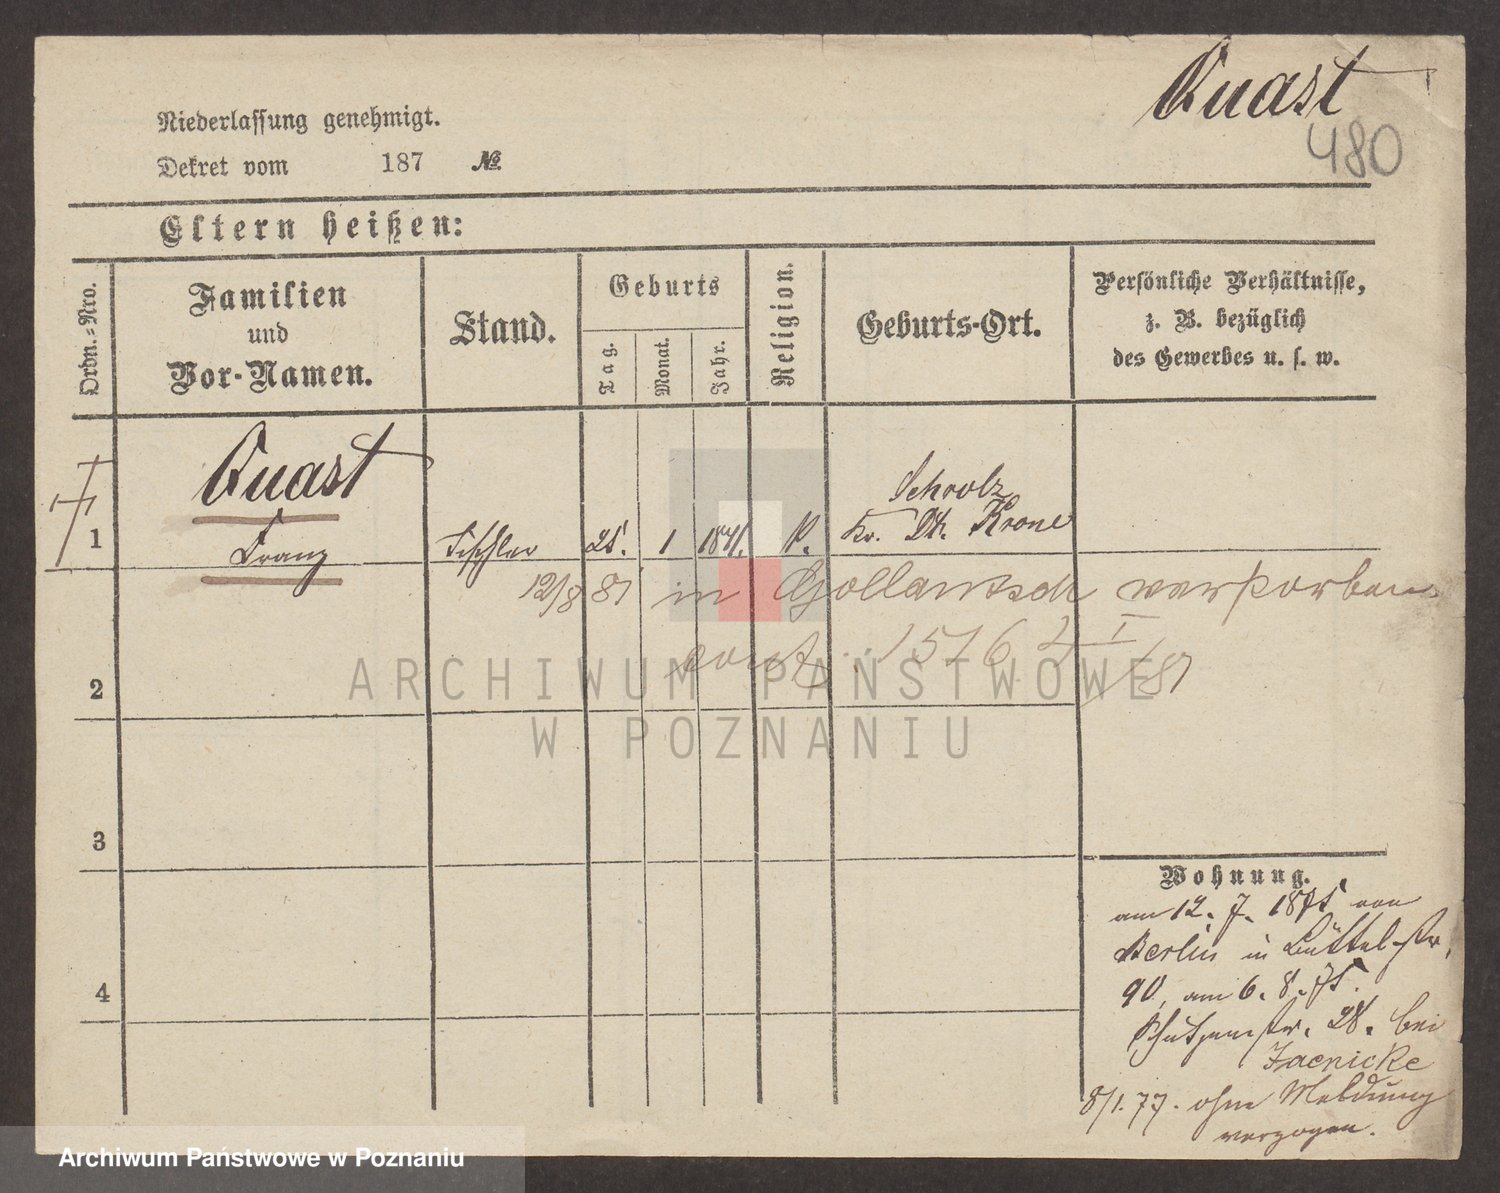 Quast
480
Niederlassung genehmigt.
Dekret vom 187 №
Eltern heißen:
Ordn.-Nro.
Familien
und
Vor-Namen.
Stand.
Geburts
Tag.
Monat.
Jahr.
Religion.
Geburts-Ort.
Persönliche Verhältnisse,
z. B. bezüglich
des Gewerbes u. s. w.
Quast
1 Franz Tischler 1 1841. Kr. Dt. Krone
12/8 81 in Gollantsch verstorben
1516
2
ARCHIWUM PAŃSTWOWE
W POZNANIU
3
4
Wohnung.
am 12. 7. 1875 von
Berlin in Büttelstr.
90, am 6. 8. 75.
Schützenstr. 28. bei
Jaenicke
8/1. 77. ohne Meldung
verzogen.
Archiwum Państwowe w Poznaniu